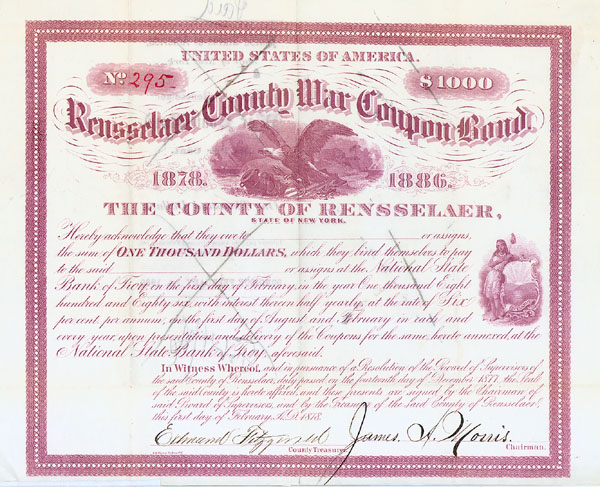 UNITED STATES OF AMERICA.
No. 295 $1000
Rensselaer County War Coupon Bond.
1878. 1886.
THE COUNTY OF RENSSELAER,
STATE OF NEW YORK.
Hereby acknowledge that they owe to or assigns,
the sum of ONE THOUSAND DOLLARS, which they bind themselves to pay
to the said or assigns at the National State
Bank of Troy on the first day of February, in the year One thousand Eight
hundred and Eighty six, with interest thereon half yearly, at the rate of Six
per cent. per annum, on the first day of August and February in each and
every year, upon presentation and delivery of the Coupons for the same, hereto annexed, at the
National State Bank of Troy, aforesaid.
In Witness Whereof, and in pursuance of a Resolution of the Board of Supervisors of
the said County of Rensselaer, duly passed on the fourteenth day of December 1877, the Seal
of the said County is hereto affixed, and these presents are signed by the Chairman of
said Board of Supervisors, and by the Treasurer of the Said County of Rensselaer,
this first day of February, A.D. 1878.
Edmund Fitzgerald James H. Morris.
County Treasurer. Chairman.